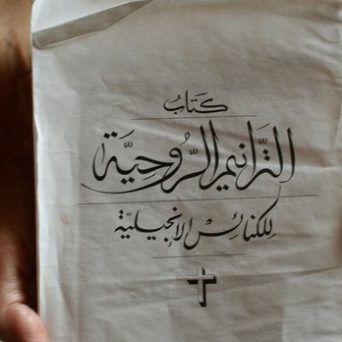 كتابُ
التَّرانيم الرُّوحيَّة
للكنائسِ الإنجيليّة